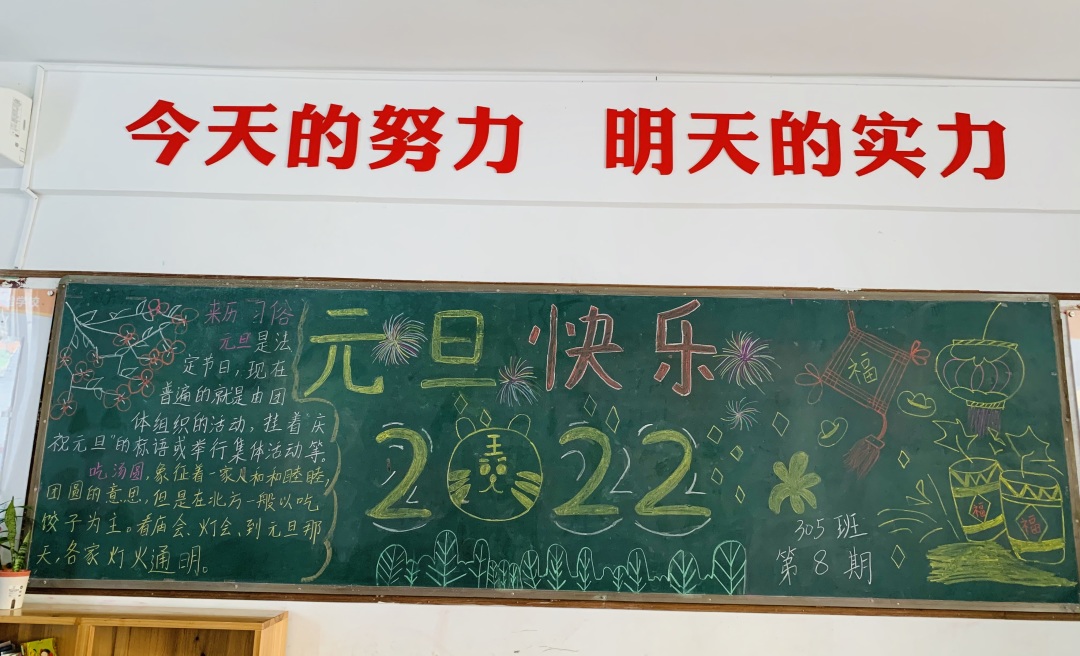 今天的努力 明天的实力
来历 习俗
元旦是法
定节日，现在
普遍的就是由团
体组织的活动，挂着“庆
祝元旦”的标语或举行集体活动等
吃汤圆，象征着一家人和和睦睦，
团圆的意思，但是在北方一般以吃
饺子为主。看庙会、灯会、到元旦那
天，各家灯火通明。
元旦快乐
2022
王
福
福
福
305班
第8期